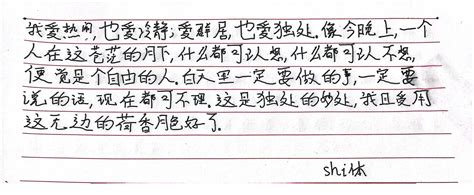 我爱热闹,也爱冷静;爱群居,也爱独处.像今晚上,一个
人在这苍茫的月下,什么都可以想,什么都可以不想,
便觉是个自由的人.白天里一定要做的事,一定要
说的话,现在都可不理.这是独处的妙处,我且受用
这无边的荷香月色好了.
shi体